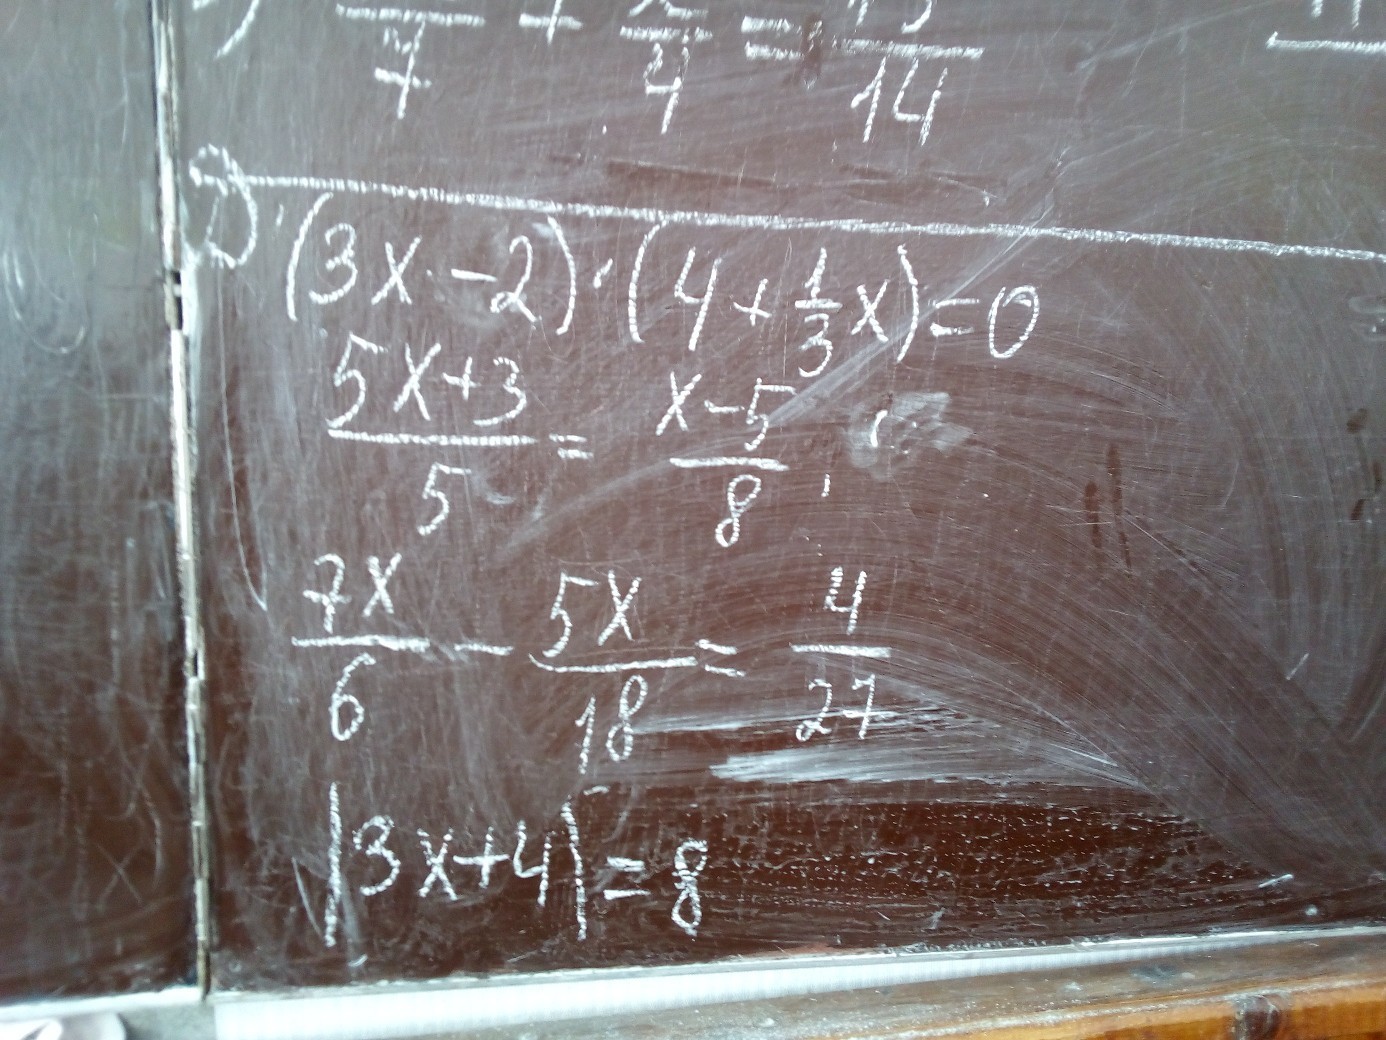 7 + 4 = 14
(3x - 2) · (4 + 1/3 x) = 0
5x+3/5 = x-5/8
7x/6 - 5x/18 = 4/27
|3x+4| = 8